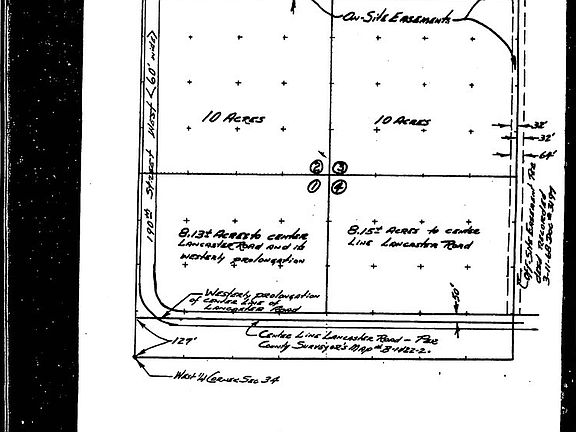 On-Site Easements
190th Street West (60' wide)
10 Acres
10 Acres
32'
32'
64'
② ③
① ④
Off-Site Easement Per
deed recorded
3-11-68 Doc # 3177
8.13± Acres to center
Lancaster Road and its
westerly prolongation
8.15± Acres to center
line Lancaster Road
Westerly prolongation
of center line of
Lancaster Road
50'
Center Line Lancaster Road – Per
County Surveyor's Map # B-1422-2.
127'
West ¼ Corner Sec 34